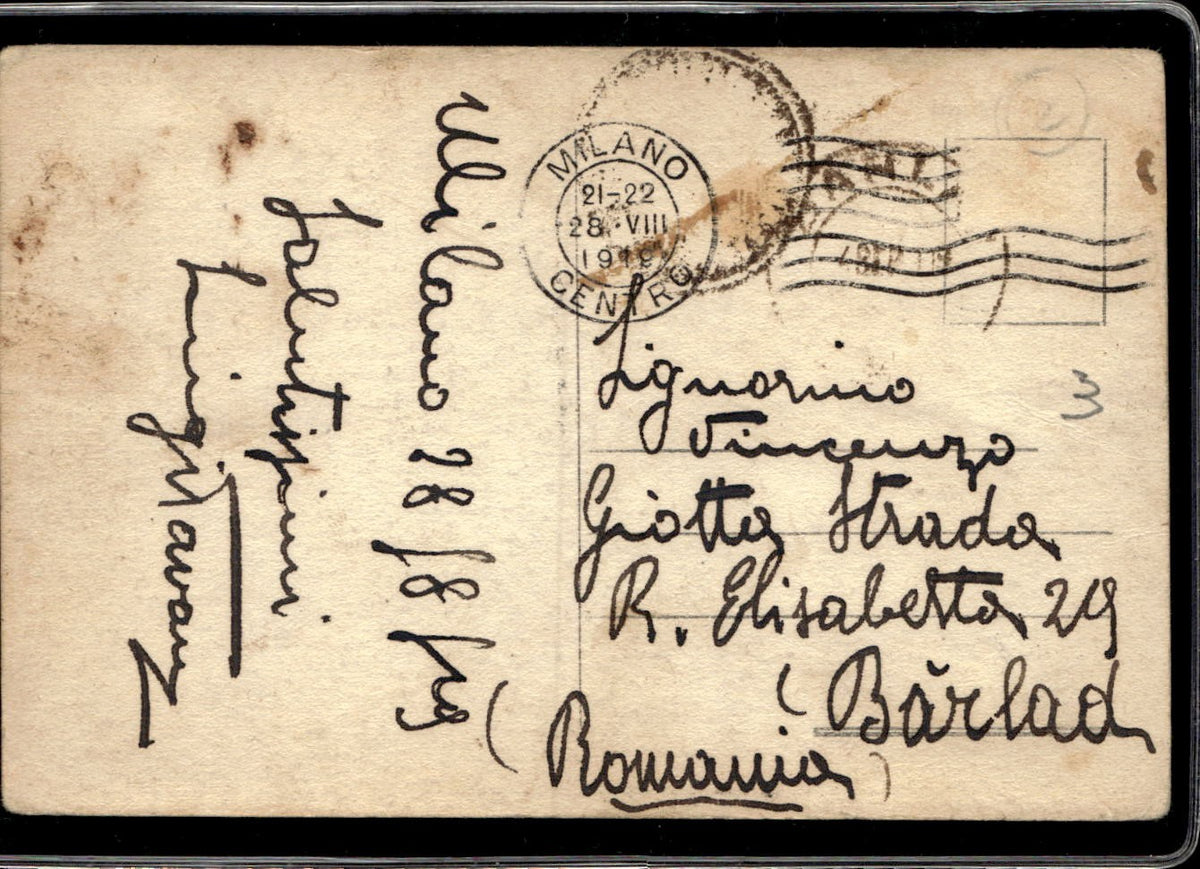 Milano 28/8/19
Salutissimi
Luigi
MILANO
21-22
28·VIII
1919
CENTRO
Signorino
Vincenzo
Giotta Strada
R. Elisabetta 29
(Bărlad
(Romania)
3